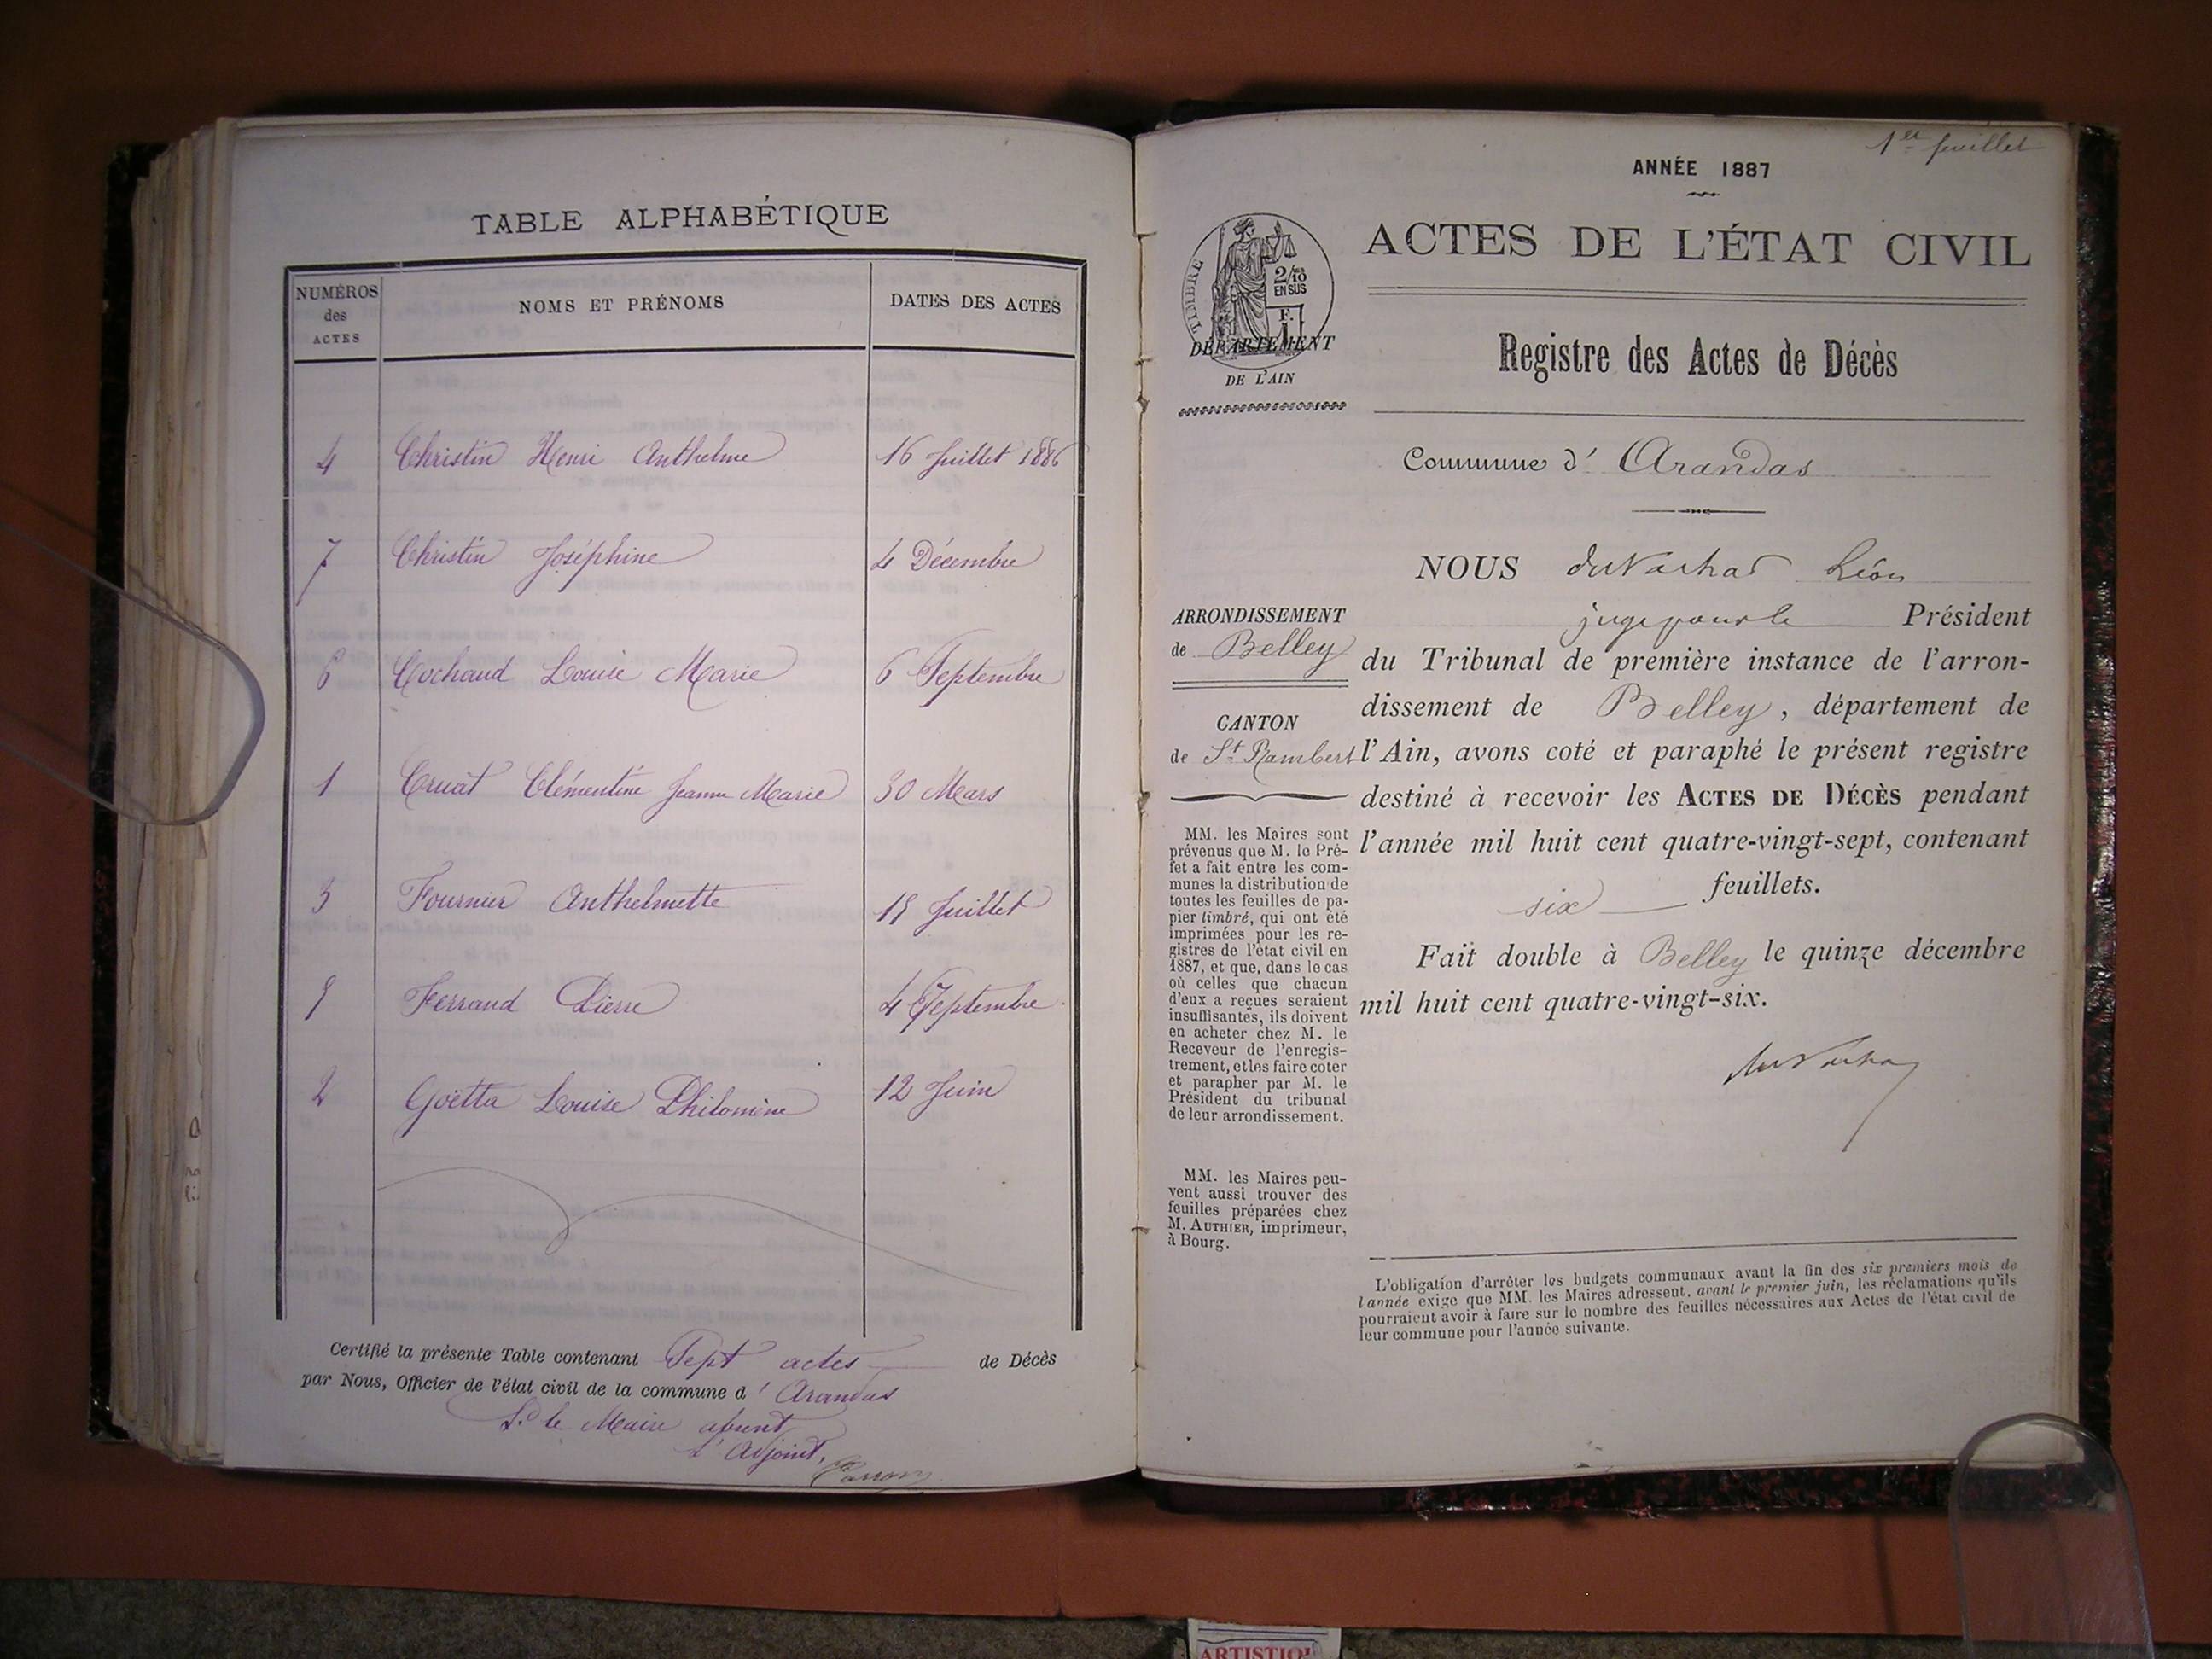 TABLE ALPHABÉTIQUE
NUMÉROS des ACTES
NOMS ET PRÉNOMS
DATES DES ACTES
4 Christin Henri Anthelme 16 Juillet 1886
7 Christin Joséphine 4 Décembre
6 Cochaud Louise Marie 6 Septembre
1 Cruat Clémentine Jeanne Marie 30 Mars
3 Fournier Anthelmette Juillet
Ferrand Pierre 4 Septembre
2 Goëtta Louise Philomène 12 Juin
Certifié la présente Table contenant Sept actes de Décès
par Nous, Officier de l'état civil de la commune d' Arandas
le Maire absent
L'Adjoint,
1er feuillet
ANNÉE 1887
ACTES DE L'ÉTAT CIVIL
TIMBRE
2/10
EN SUS
DÉPARTEMENT
DE L'AIN
Registre des Actes de Décès
Commune d' Arandas
NOUS Léon
juge pour le Président
du Tribunal de première instance de l'arron-
dissement de Belley, département de
l'Ain, avons coté et paraphé le présent registre
destiné à recevoir les ACTES DE DÉCÈS pendant
l'année mil huit cent quatre-vingt-sept, contenant
six feuillets.
Fait double à Belley le quinze décembre
mil huit cent quatre-vingt-six.
ARRONDISSEMENT
de Belley
CANTON
de St Rambert
MM. les Maires sont
prévenus que M. le Pré-
fet a fait entre les com-
munes la distribution de
toutes les feuilles de pa-
pier timbré, qui ont été
imprimées pour les re-
gistres de l'état civil en
1887, et que, dans le cas
où celles que chacun
d'eux a reçues seraient
insuffisantes, ils doivent
en acheter chez M. le
Receveur de l'enregis-
trement, et les faire coter
et parapher par M. le
Président du tribunal
de leur arrondissement.
MM. les Maires peu-
vent aussi trouver des
feuilles préparées chez
M. AUTHIER, imprimeur,
à Bourg.
L'obligation d'arrêter les budgets communaux avant la fin des six premiers mois de
l'année exige que MM. les Maires adressent, avant le premier juin, les réclamations qu'ils
pourraient avoir à faire sur le nombre des feuilles nécessaires aux Actes de l'état civil de
leur commune pour l'année suivante.